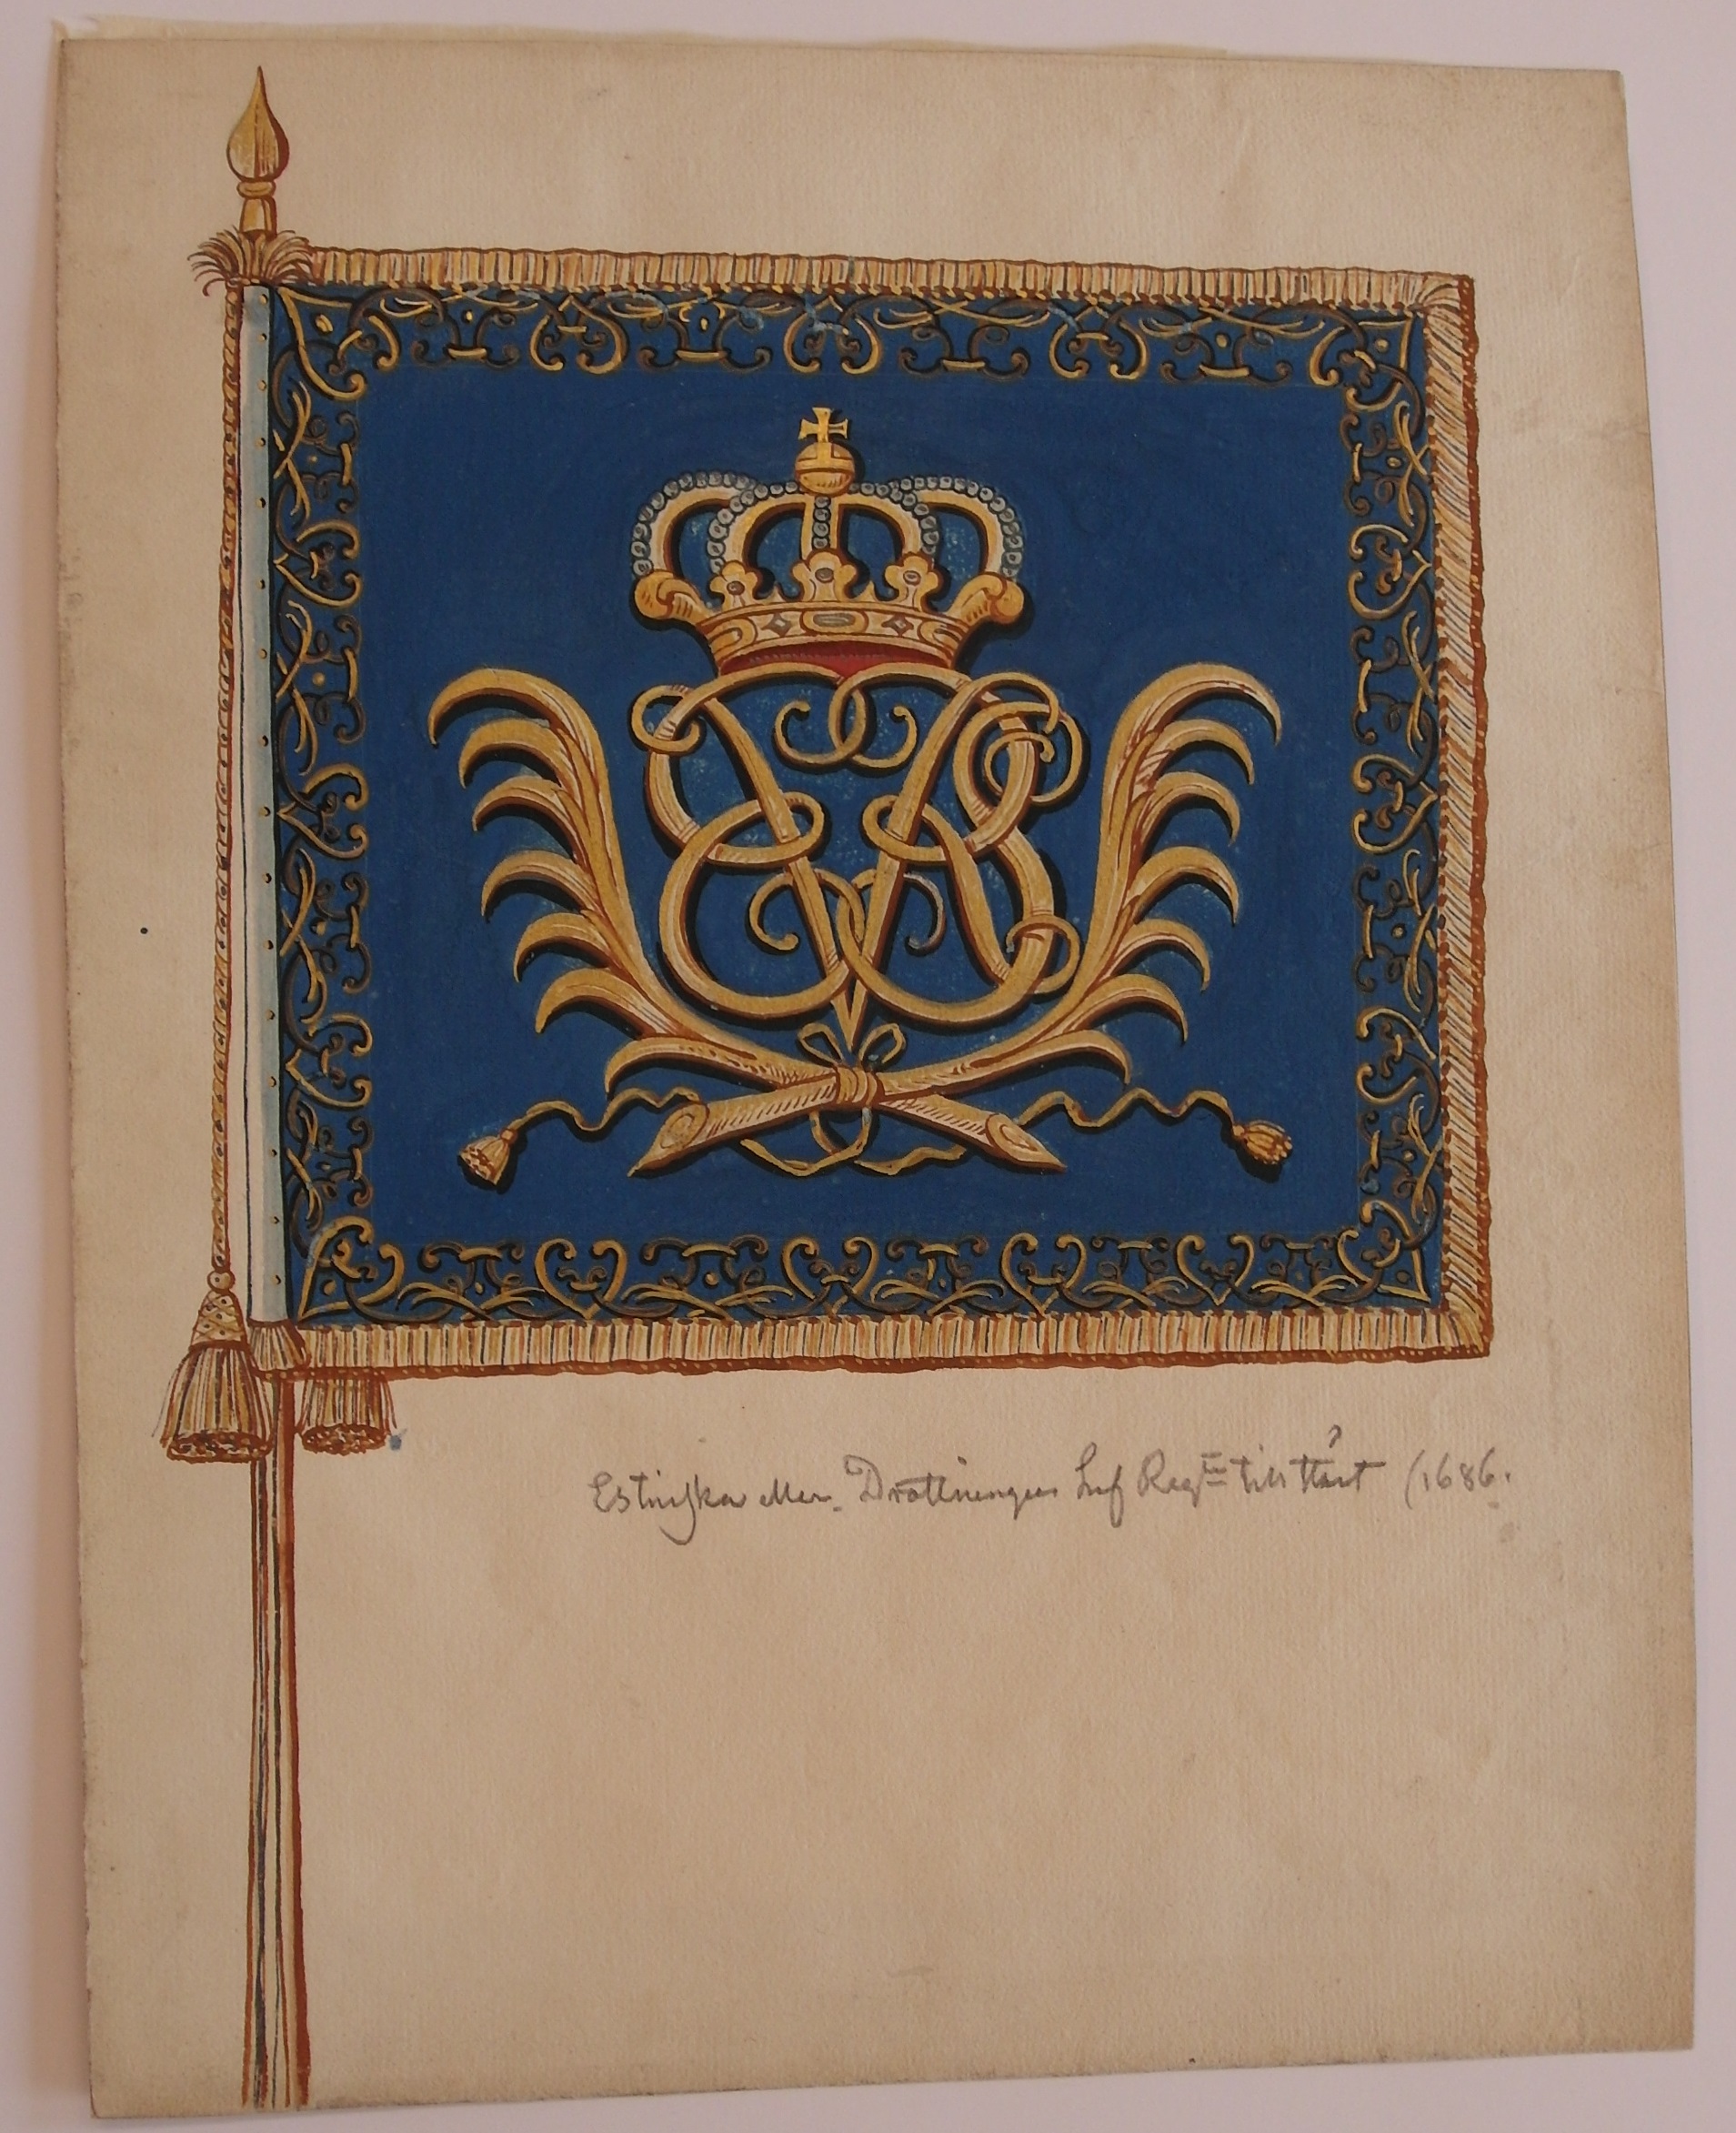 Estniska eller Drottningens Lif Reg:te till häst (1686.